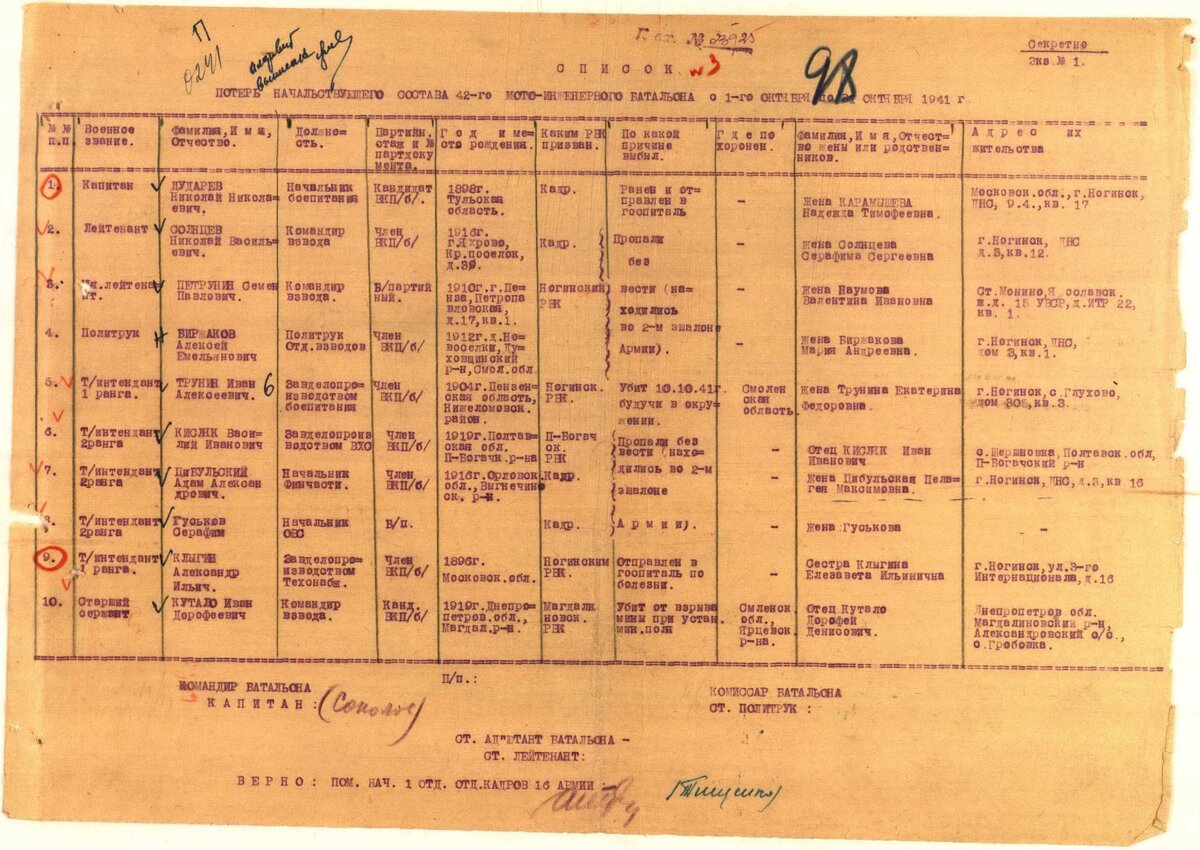 П
0241
Вх. № 33925
Секретно
Экз.№ 1.
98
С П И С О К №3
ПОТЕРЬ НАЧАЛЬСТВУЮЩЕГО СОСТАВА 42-го МОТО-ИНЖЕНЕРНОГО БАТАЛЬОНА с 1-го ОКТЯБРЯ по 21 ОКТЯБРЯ 1941 г.
№ № п.п. Военное звание. Фамилия,Имя, Отчество. Должно-сть. Партийн. стаж и № партдоку мента. Год и ме-сто рождения. Каким РВК призван. По какой причине выбыл. Где по хоронен. Фамилия,Имя,Отчест-во жены или родствен-ников. Адрес их жительства
1. Капитан ДУДАРЕВ Николай Никола=евич. Начальник боепитания Кандидат ВКП/б/. 1898г. Тульская область. Кадр. Ранен и от=правлен в госпиталь - Жена КАРАМЫШЕВА Надежда Тимофеевна. Московск.обл.,г.Ногинск, ДНС, 9.4.,кв. 17
2. Лейтенант СОЛНЦЕВ Николай Василь=евич. Командир взвода Член ВКП/б/ 1916г. г.Яхрово, Кр.поселок, д.39. Кадр. Пропали без - Жена Солнцева Серафима Сергеевна г.Ногинск, ДНС д.3,кв.12.
3. Мл.лейтена нт. ПЕТРУНИН Семен Павлович. Командир взвода. Б/партий ный. 1910г.г.Пе=нза,Петропа вловская, д.17,кв.1. Ногинский РВК вести (на=ходились - Жена Наумова Валентина Ивановна Ст.Монино,Ярославск. ж.д. 15 УВСР,д.ИТР 22, кв. 1.
4. Политрук БИРЖАКОВ Алексей Емельянович Политрук Отд.взводов Член ВКП/б/ 1912г.д.Но=воселки,Ду=ховщинский р-н,Смол.обл. во 2-м эшалоне Армии). - Жена Биржакова Мария Андреевна. г.Ногинск,ДНС, дом 3,кв.1.
5. Т/интендант 1 ранга. ТРУНИН Иван Алексеевич. 6 Завделопро=изводством боепитания Член ВКП/б/ 1904г.Пензен=ская область, Нижеломовск. район. Ногинск. РВК. Убит 10.10.41г. будучи в окру=жении. Смолен ская область. Жена Трунина Екатерина Федоровна. г.Ногинск,с.Глухово, дом 305,кв.3.
6. Т/интендант 2ранга КИСЛЯК Васи=лий Иванович Завделопроиз водством ВХС Член ВКП/б/ 1919г.Полтав=ская обл. П-Богачк.р-на П-Богач ск. РВК. Пропали без вести (нахо=дились во 2-м - Отец КИСЛЯК Иван Иванович с.Шершновка,Полтавск.обл, П-Богачский р-н
7. Т/интендант 2ранга ЦИБУЛЬСКИЙ Адам Алексан дрович. Начальник Финчасти. Член ВКП/б/ 1916г.Орловск обл.,Выгнечине ск. р-н. Кадр. эшалоне - Жена Цибульская Пела=гея Максимовна. г.Ногинск,ДНС,д.3,кв 16
8. Т/интендант 2ранга Гуськов Серафим Начальник ОВС Б/п. Кадр. Армии). - Жена Гуськова -
9. Т/интендант 1 ранга. КЛЫГИН Александр Ильич. Завделопро=изводством Техснабж. Член ВКП/б/ 1896г. Московск.обл. Ногинским РВК. Отправлен в госпиталь по болезни. - Сестра Клыгина Елезавета Ильинична г.Ногинск,ул.3-го Интернационала,д.16
10. Старший сержант. КУТАЛО Иван Дорофеевич Командир взвода. Канд. ВКП/б/ 1919г.Днепро=петров.обл., Магдал.р-н. Магдали новск. РВК Убит от взрыва мины при устан. мин.поля Смленск обл., Ярцевск р-на. Отец Кутало Дорофей Денисович. Днепропетров обл. Магдалиновский р-н, Александровский с/с., с.Гробовка.
П/п.:
КОМАНДИР БАТАЛЬОНА
К А П И Т А Н : (Соколов)
КОМИССАР БАТАЛЬОНА
СТ. ПОЛИТРУК :
СТ. АД"ЮТАНТ БАТАЛЬОНА -
СТ. ЛЕЙТЕНАНТ:
В Е Р Н О : ПОМ. НАЧ. 1 ОТД. ОТД.КАДРОВ 16 АРМИИ - (Тищенко)